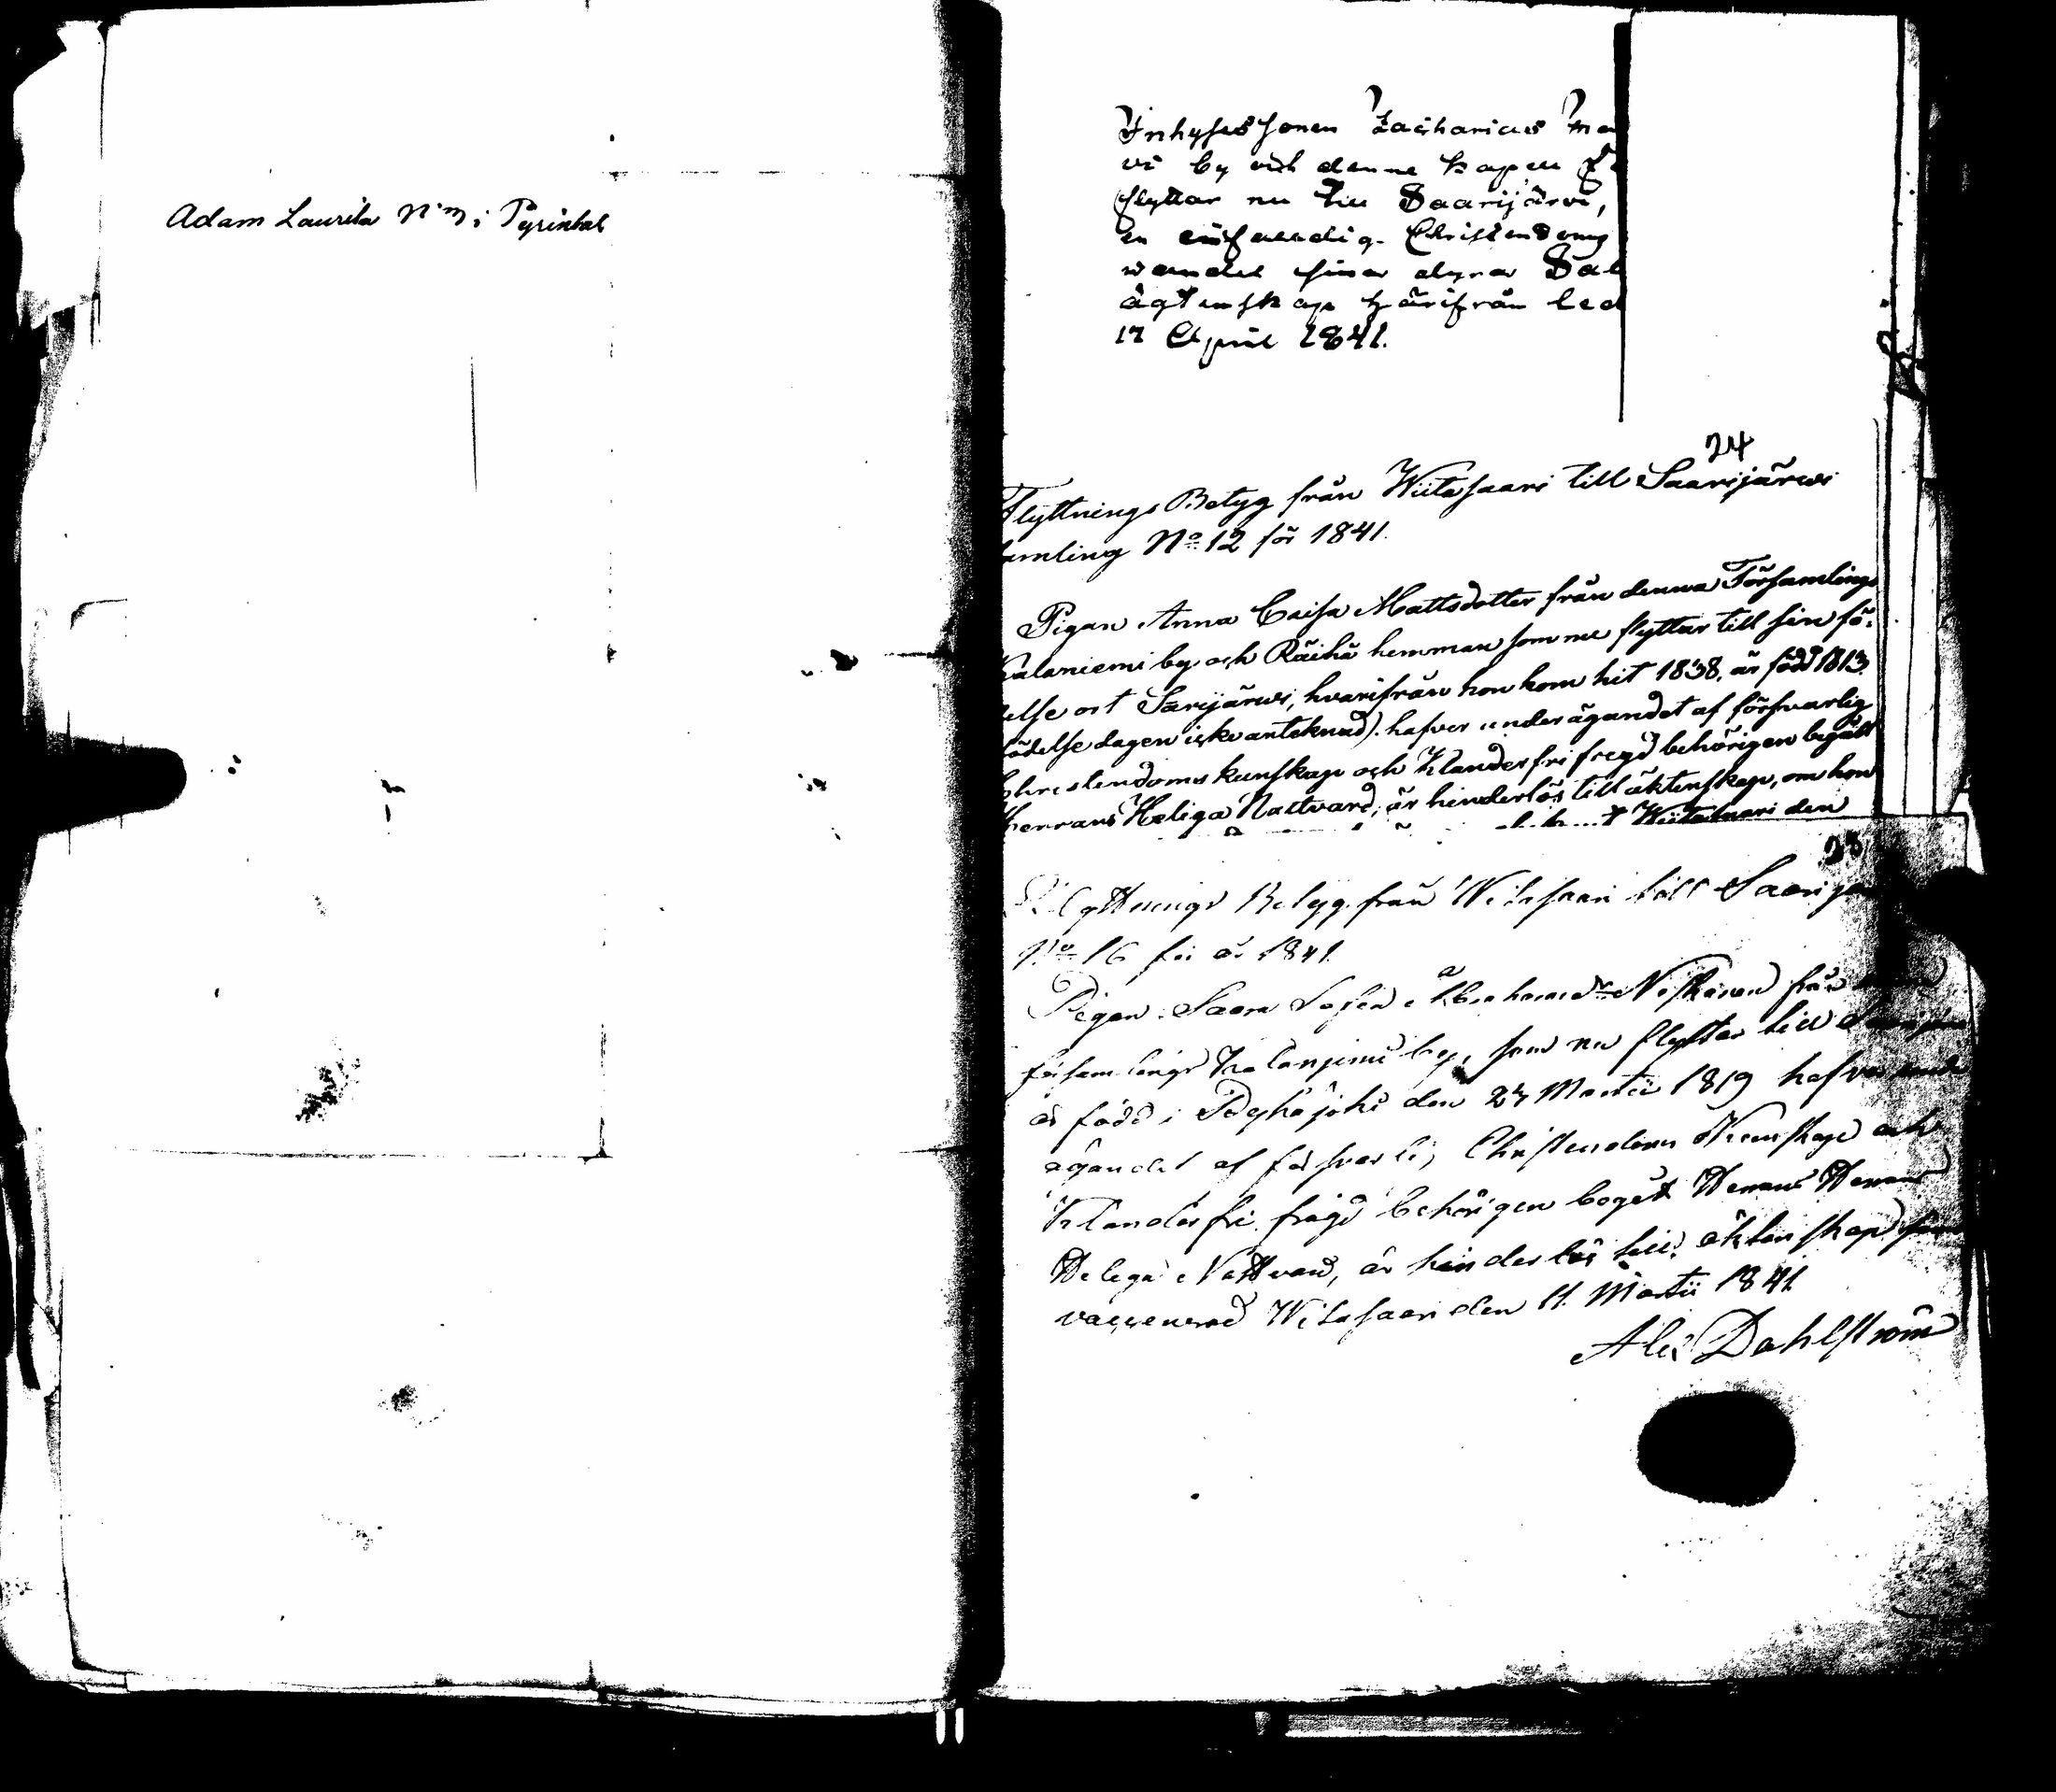 Adam Laurila N:o 3 i Pyrinhal
Inhyses sonen Zacharias Ma
vi by och denne kapell
flyttar nu till Saarijärvi,
en enfaldig Christendoms
wandel sina dyra Sal
ägtenskap härifrån led
17 April 1841.
24
Flyttnings Betyg från Wiitasaari till Saarijärwi
samling No 12 för 1841.
Pigan Anna Caisa Mattsdotter från denna Församlings
Kalaniemi by och Räihä hemman som nu flyttar till sin fö-
delse ort Sarijärwi, hvarifrån hon kom hit 1838, är född 1813
födelse dagen icke anteknad). hafver under ägandet af försvarlig
Christendoms kunskap och Klanderfri fregd behörigen begått
Herrans Heliga Nattvard; är hinderlös till äktenskap, om hon
Wiitasaari den
Flyttnings Betyg från Witasaari till Saarijär
No 16 för år 1841.
Pigan Saara Sofia Abrahamsdr Niskanen från
församlings Kalanjemi by, som nu flyttar till Saarijär
är född i Pyhäjoki den 27 Martii 1819 hafver under
ägandet af försvarlig Christendoms Kunskap och
Klanderfri frägd behörigen begått Herrans
Heliga Nattvard, är hinderlös till äktenskap
vaccinerad Witasaari den 11. Martii 1841.
Alex Dahlström